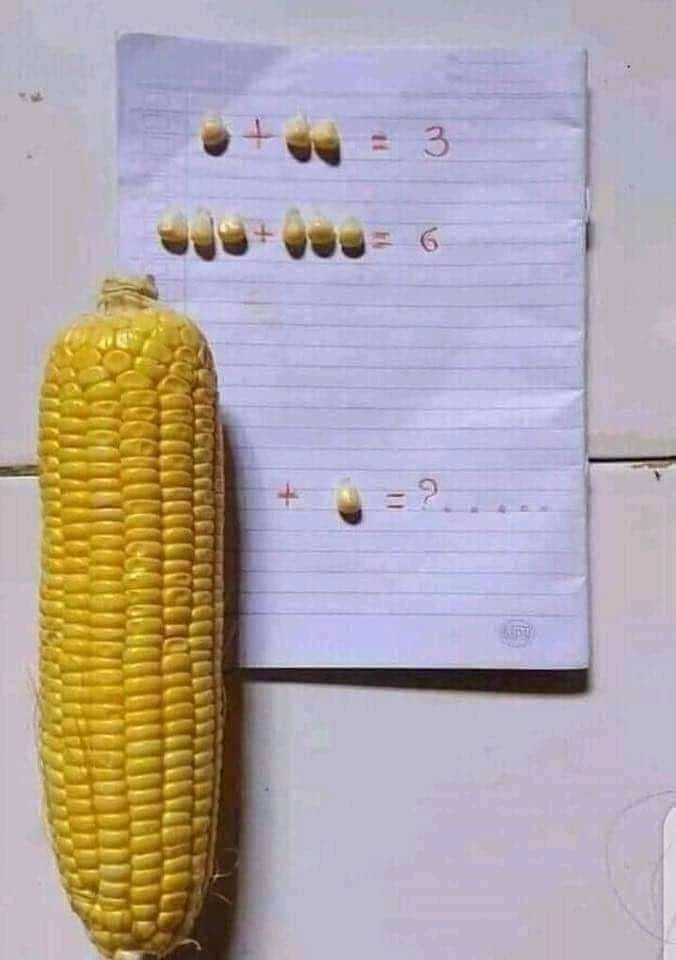 + = 3
+ = 6
+ = ?......